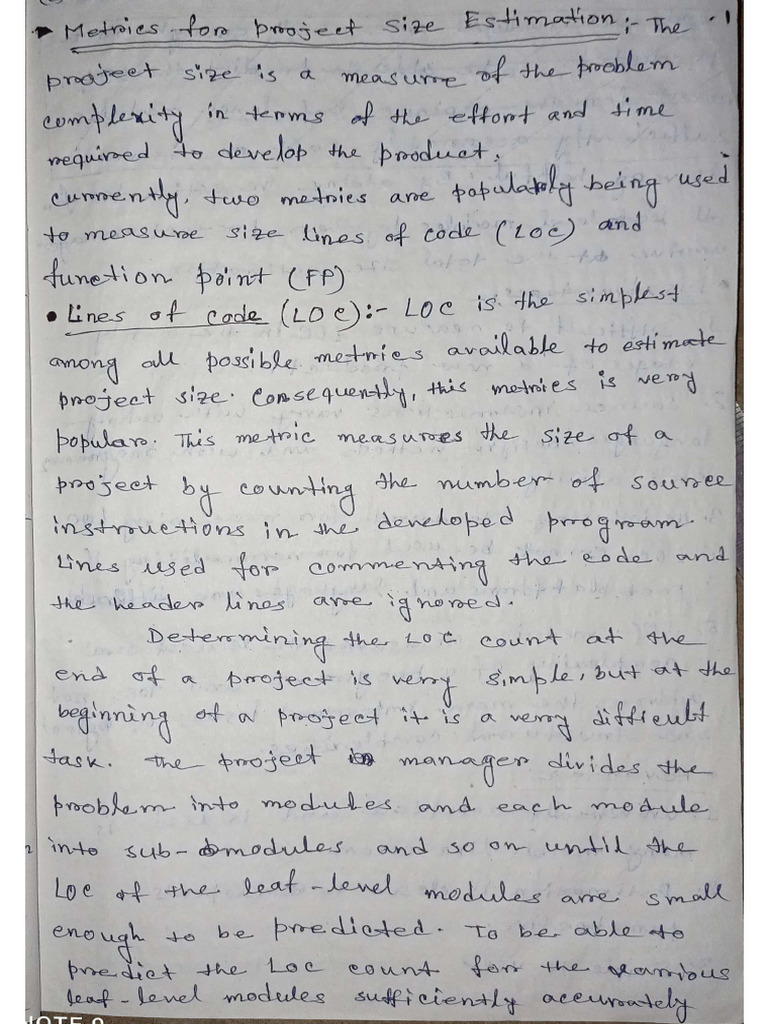 ▸ Metrics for project size Estimation:- The
project size is a measure of the problem
complexity in terms of the effort and time
required to develop the product.
currently, two metrics are popularly being used
to measure size lines of code (LOC) and
function point (FP)
• Lines of code (LOC):- LOC is the simplest
among all possible metrics available to estimate
project size. Consequently, this metrics is very
popular. This metric measures the size of a
project by counting the number of source
instructions in the developed program.
Lines used for commenting the code and
the header lines are ignored.
Determining the LOC count at the
end of a project is very simple, but at the
beginning of a project it is a very difficult
task. The project manager divides the
problem into modules and each module
into sub-modules and so on until the
LOC of the leaf-level modules are small
enough to be predicted. To be able to
predict the LOC count for the various
leaf-level modules sufficiently accurately